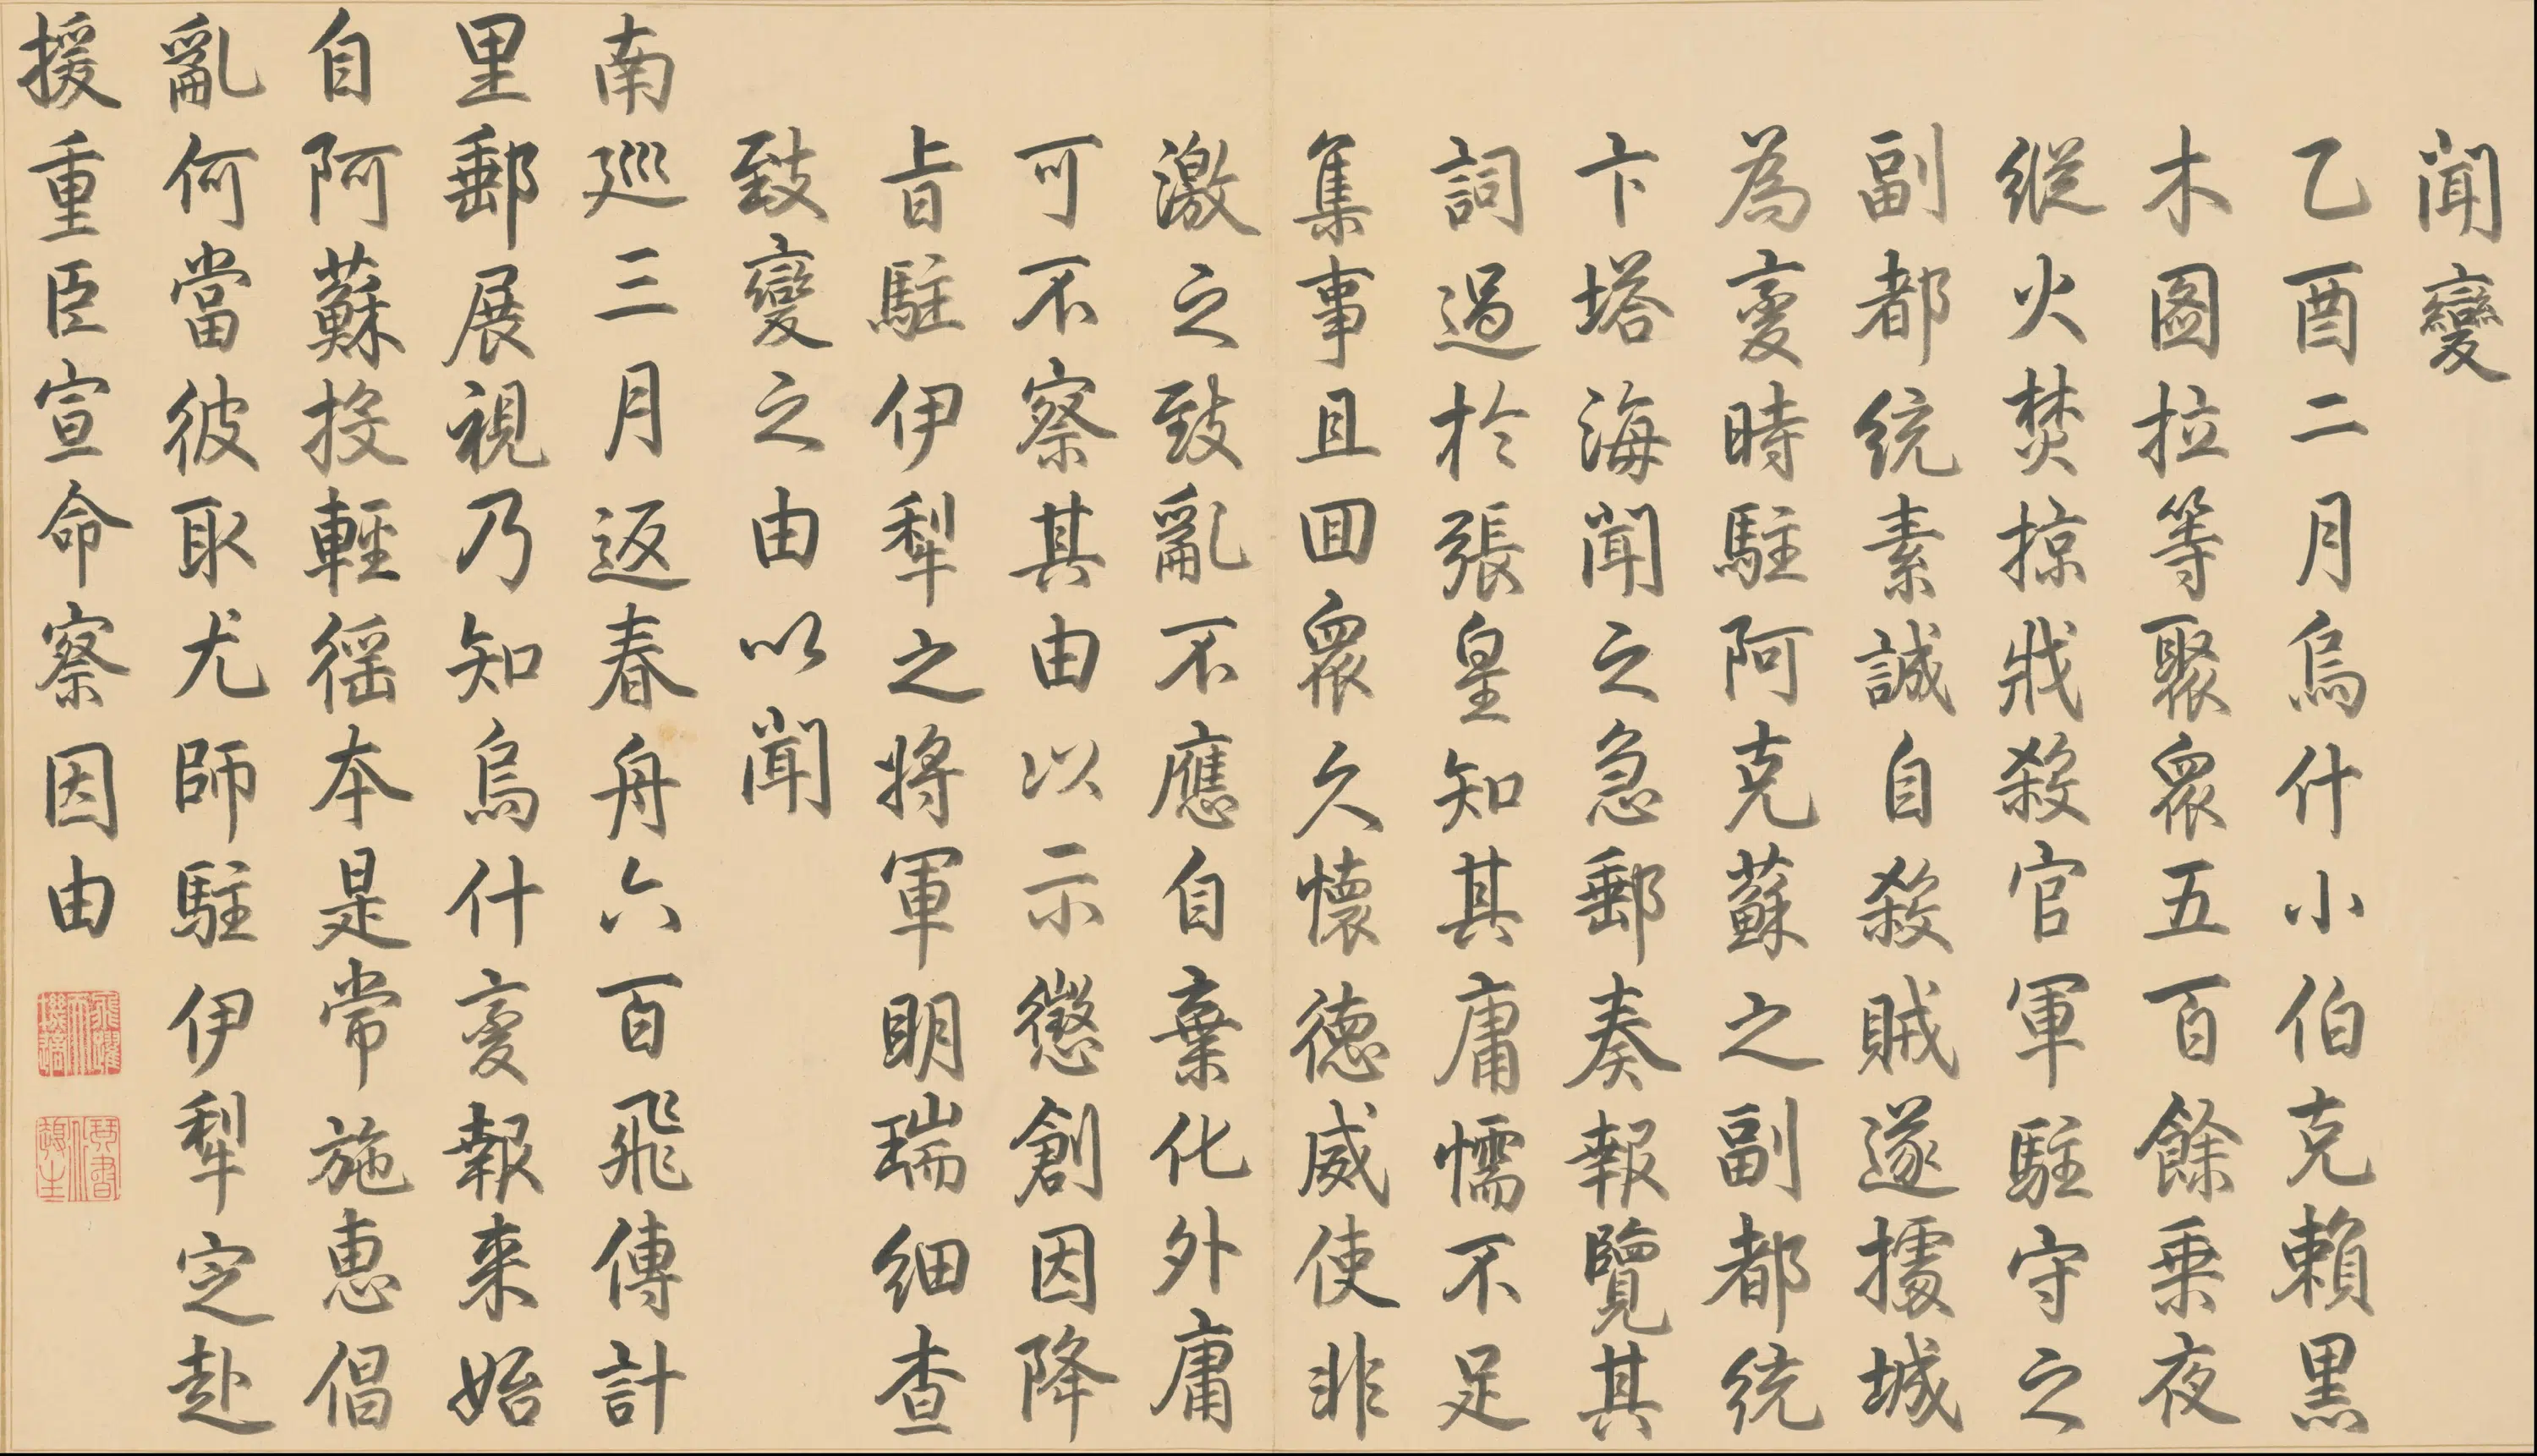 聞變
乙酉二月烏什小伯克賴黑
木圖拉等聚衆五百餘乗夜
縱火焚掠戕殺官軍駐守之
副都統素誠自殺賊遂據城
為變時駐阿克蘇之副都統
卞塔海聞之急郵奏報覽其
詞過於張皇知其庸懦不足
集事且囬衆久懷德威使非
激之致亂不應自棄化外庸
可不察其由以示懲創因降
旨駐伊犁之將軍明瑞細查
致變之由以聞
南廵三月返春舟六百飛傳計
里郵展視乃知烏什變報来始
自阿蘇投輕徭本是常施惠倡
亂何當彼取尤師駐伊犁定赴
援重臣宣命察因由